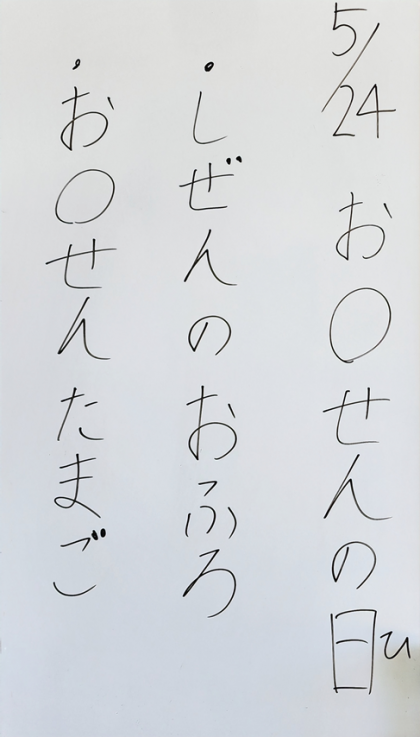 5/24 お○せんの日ひ
・しぜんのおふろ
・お○せんたまご